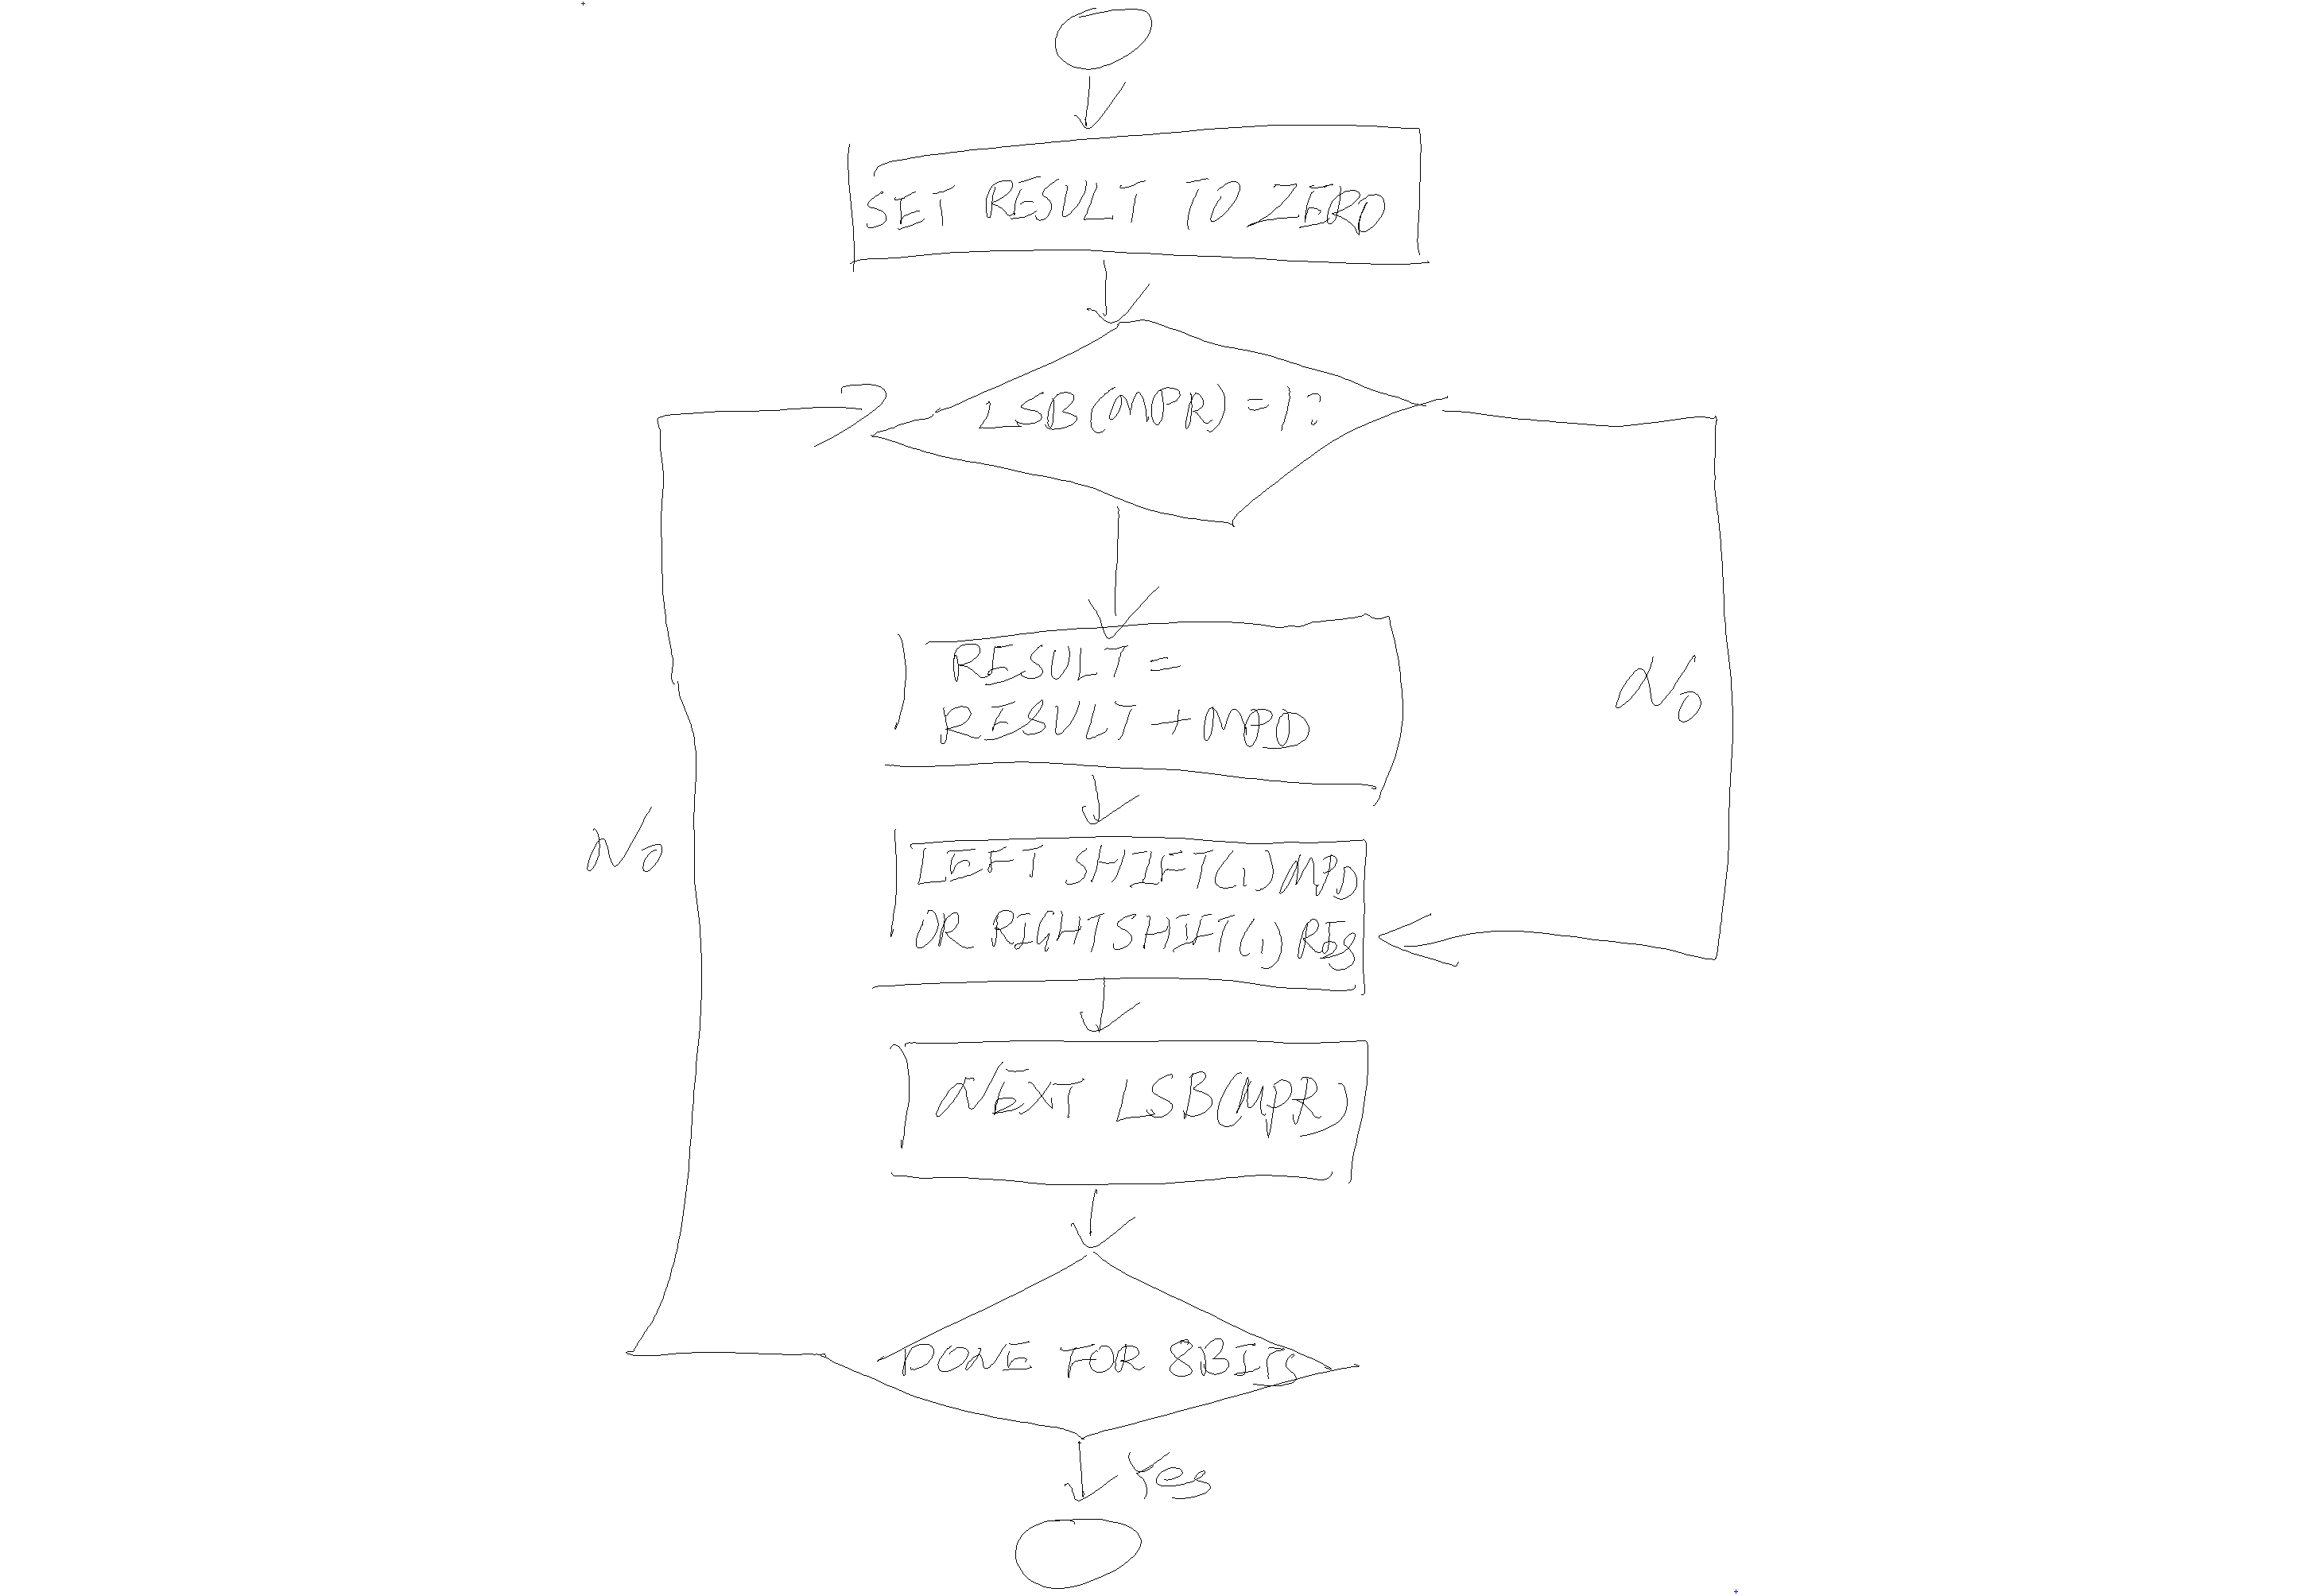 SET RESULT TO ZERO
LSB(MPR)=1?
RESULT=
RESULT+MPD
No
LEFT SHIFT(1) MPD
OR RIGHT SHIFT(1) RES
No
NEXT LSB(MPR)
DONE FOR 8BITS
Yes